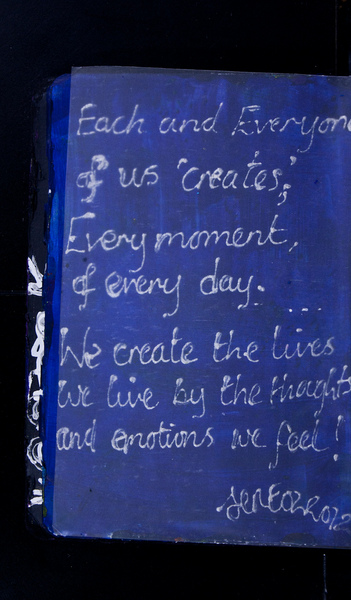 Each and Everyone
of us 'creates';
Every moment,
of every day. ...
We create the lives
we live by the thoughts
and emotions we feel!